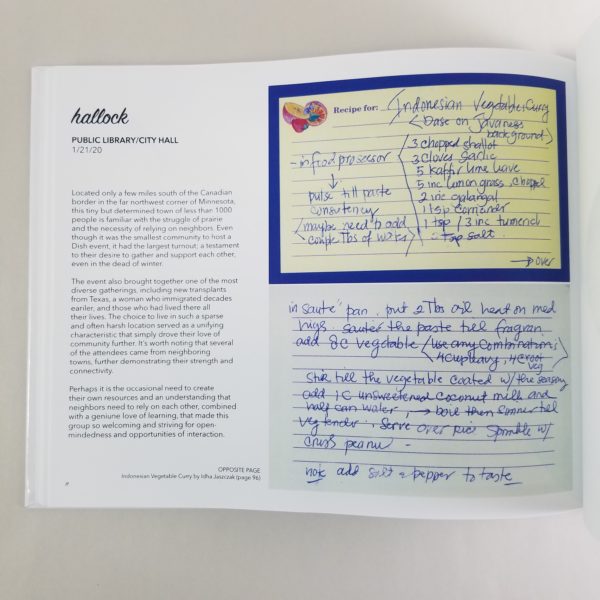 hallock
PUBLIC LIBRARY/CITY HALL
1/21/20
Located only a few miles south of the Canadian
border in the far northwest corner of Minnesota,
this tiny but determined town of less than 1000
people is familiar with the struggle of prairie life
and the necessity of relying on neighbors. Even
though it was the smallest community to host a
Dish event, it had the largest turnout; a testament
to their desire to gather and support each other,
even in the dead of winter.
The event also brought together one of the most
diverse gatherings, including new transplants
from Texas, a woman who immigrated decades
earlier, and those who had lived there all
their lives. The choice to live in such a sparse
and often harsh location served as a unifying
characteristic that simply drove their love of
community further. It's worth noting that several
of the attendees came from neighboring
towns, further demonstrating their strength and
connectivity.
Perhaps it is the occasional need to create
their own resources and an understanding that
neighbors need to rely on each other, combined
with a geniune love of learning, that made this
group so welcoming and striving for open-
mindedness and opportunities of interaction.
OPPOSITE PAGE
Indonesian Vegetable Curry by Idha Jaszczak (page 96)
Recipe for: Indonesian Vegetable Curry
Base on Javaness
background
3 chopped shallot
- in food prosessor
3 cloves garlic
5 kaffir lime leave
5 inc lemon grass, chopped
pulse till paste
2 inc galangal
consistency
1 tsp coriender
maybe need to add
1 tsp / 3 inc tumeric
couple Tbs of water
tsp salt
→ over
in saute' pan, put 2 Tbs oil heat on med
high. sauter the paste till fragran
add 8C vegetable (use any combination,
4 cup leavy, 4C root
veg
Stir till the vegetable coated w/ the seasong
add 1C unsweetened coconut milk and
half can water, → boil then simmer till
veg tender. Serve over rice Sprinkle w/
peanut
note add salt & pepper to taste